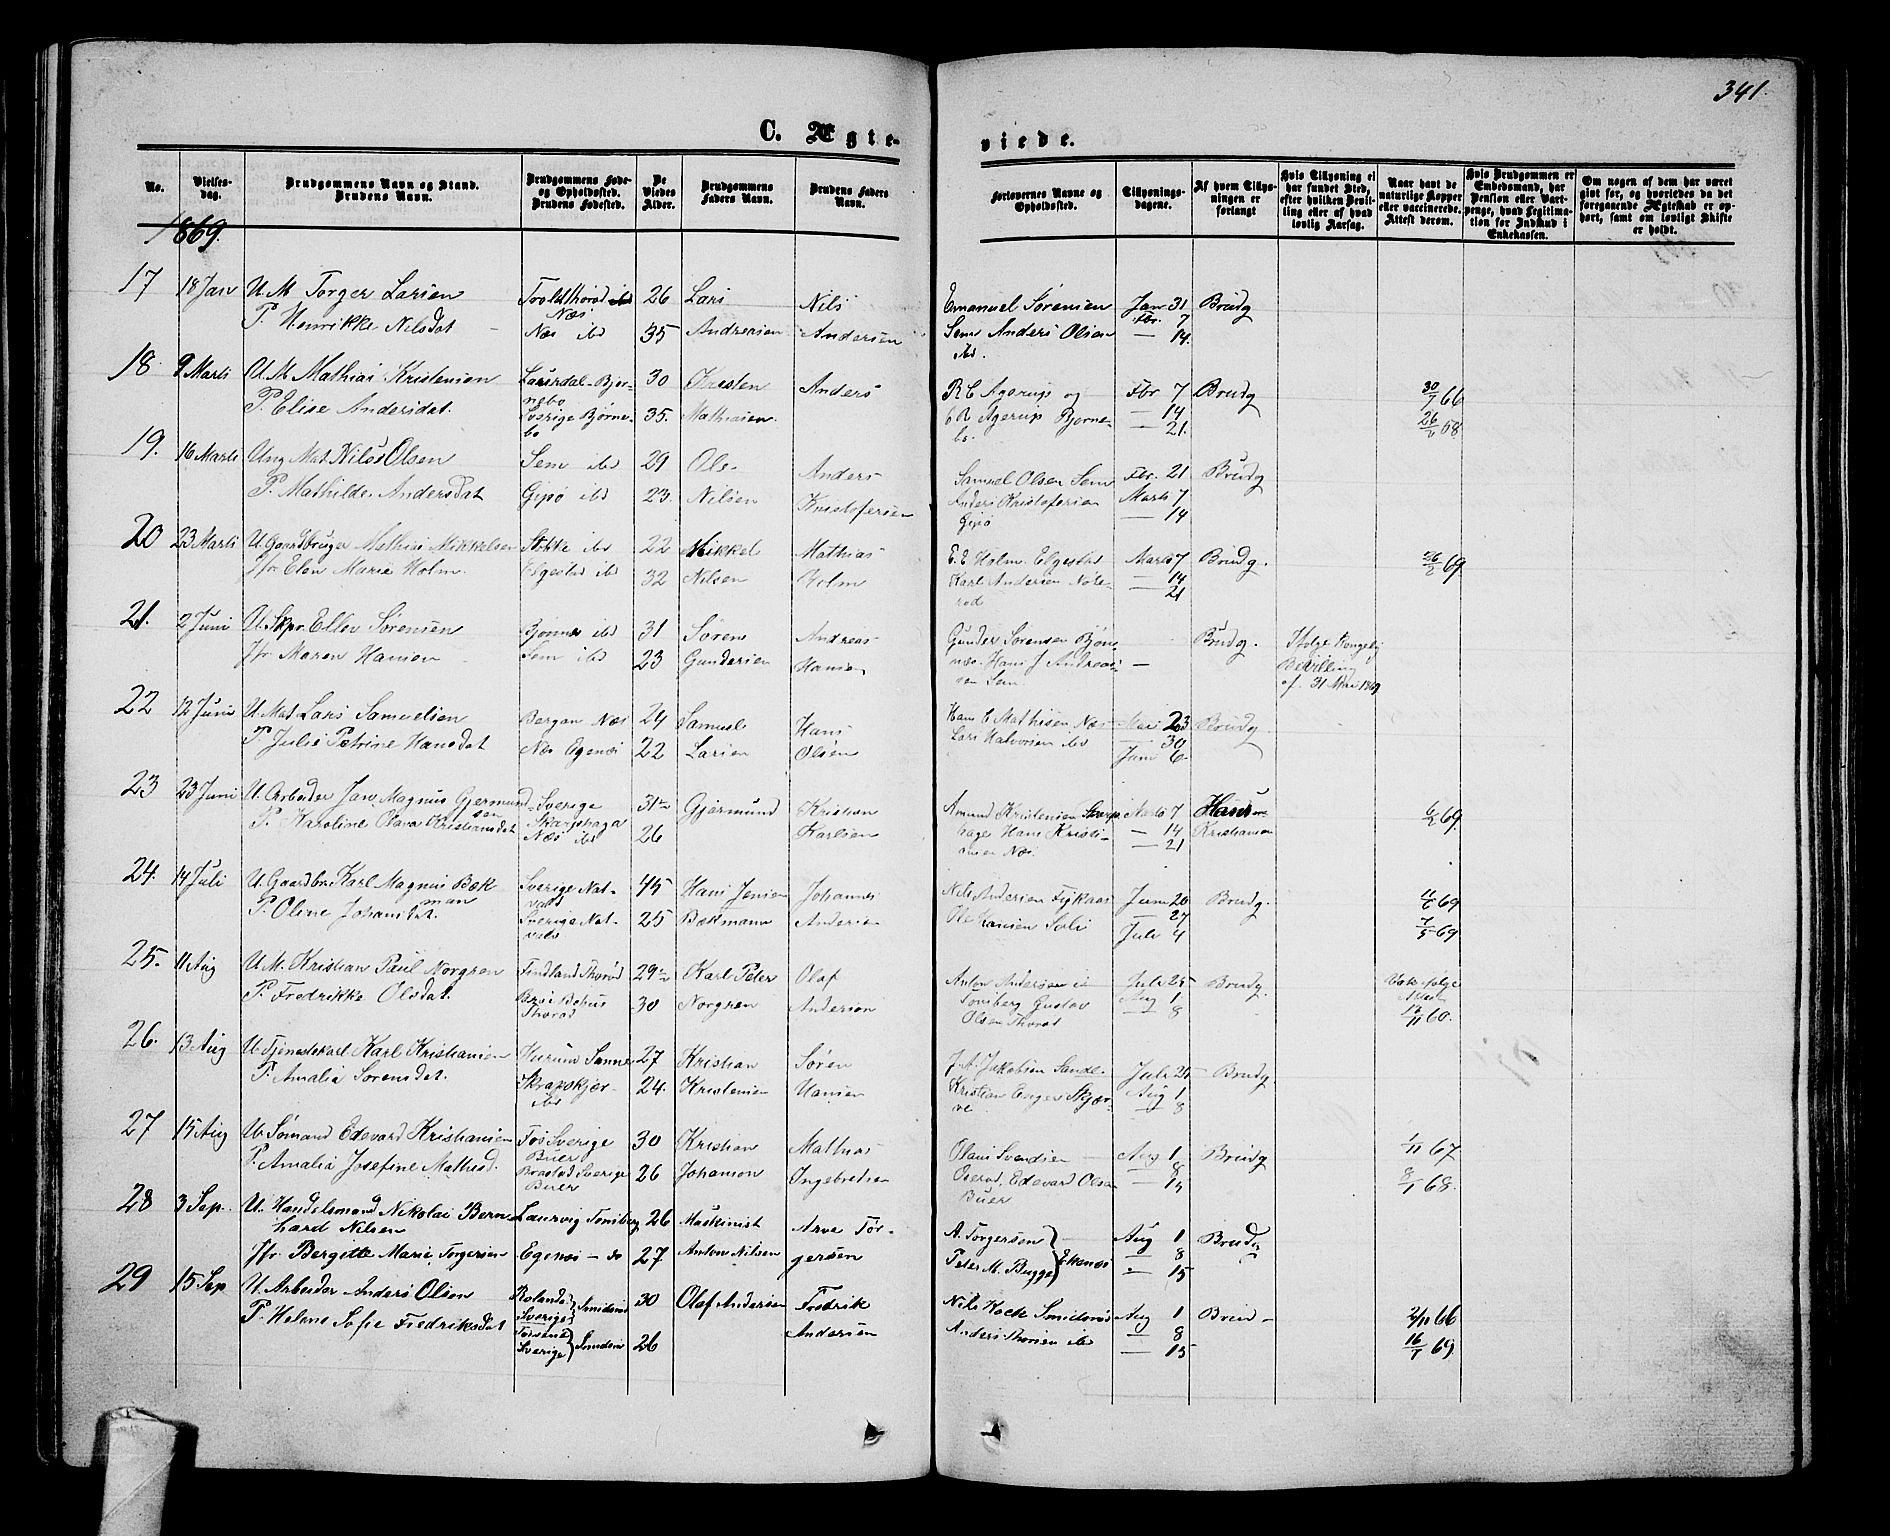 341.
C. Ægte-
viede.
No.
Vielses-
dag.
Brudgommens Navn og Stand.
Brudens Navn.
Brudgommens Føde-
og Opholdssted.
Brudens Fødested.
De
Viedes
Alder.
Brudgommens
Faders Navn.
Brudens Faders
Navn.
Forlovernes Navne og
Opholdssted.
Tillysnings-
dagene.
Af hvem Tillys-
ningen er
forlangt
Hvis Tillysning ei
har fundet Sted,
efter hvilken Bevil-
ling eller af hvad
lovlig Aarsag.
Naar havt de
naturlige Kopper
eller vaccinerede.
Attest derom.
Hvis Brudgommen er
Embedsmand, har
Pension eller Vart-
penge, hvad Legitima-
tion for Indskud i
Enkekassen.
Om nogen af dem har været
gift før, og hvorledes da det
foregaaende Ægteskab er op-
hørt, samt om lovligt Skifte
er holdt.
1869.
17 18 Jan U M Torger Larsen 26 Lars Nils Emanuel Sørensen Jan 31 Brudg
Næs Fbr. 7
P. Henrikke Nilsdat Næs ibd 35 Andersen Andersen Sem Anders Olsen — 14.
ibd.
18. 9 Marts U M Mathias Kristensen 30 Kristen Anders R C Agerup og Fbr 7 Brudg 30/7 66
nebo
P. Elise Andersdat. Sverige Bjørne- 35. Mathiasen. Agerup Bjørne- — 14
bo bo. — 21. 68
19. 16 Marts Ung Mat Nils Olsen Sem ibd 29 Ole Anders Samuel Olsen Sem Fbr. 21 Brudg
P. Mathilde Andersdat Gipø ibd 23. Nilsen Kristofersen Anders Kristofersen Marts 7
Gipø — 14
20 23 Marts U. Gaardbruger Mathias Mikkelsen Stokke ibd 22 Mikkel Mathias E. E Holm Elgestad Marts 7 Brudg. 26/2 69
Jfr Elen Marie Holm. Elgestad ibd 32 Nilsen Holm Karl Andersen Nøte- — 14
rød — 21
21. 2 Juni U. Skpr. Ellev Sørensen Bjønnes ibd 31 Søren Andreas Gunder Sørensen Bjøn- Brudg. Ifølge Kongelig
Jfr Maren Hansen Sem ibd 23 Gundersen Hansen næs. Hans J Andreas- — Bevilling
sen Sem. af 31 Mai 1869
22 12 Juni U. Mat Lars Samuelsen Bergan Næs 24 Samuel Hans Hans C Mathisen Næs Mai 23 Brudg
P Julie Petrine Hansdat Næs Egenæs 22 Larsen Olsen Lars Halvorsen ibd — 30
Juni 6
23 23 Juni U. Arbeider Jan Magnus Gjermund- Sverige 31 Gjørmund Kristian Amund Kristensen Marts 7 Hans 69
sen
P. Karoline Olava Kristiansdat Næs ibd 26 Karlsen hage Hans Kristi- — 14 Kristiansen
ansen Næs. — 21
24. 14 Juli U. Gaardbr. Karl Magnus Bæk Sverige Nat- 45 Hans Jensen Johannes Nils Andersen Fijkaas Juni 20 Brudg. 69
man vald
P. Oline Johansdat. Sverige Nat- 25 Bækmann Andersen Ole Hansen Solie — 27 7/5 69
vald Juli 4
25. 11 Aug U. M. Kristian Paul Norgren Findland Thorød 29 Karl Peter Olaf Anton Andersen i Juli 25 Brudg.
P. Fredrikke Olsdat. Thorød 30 Norgren Andersen Tønsberg Gustav Aug 1
Olsen Thorød — 8 60.
26. 13 Aug U. Tjenestekarl Karl Kristiansen Hurum Sanne 27 Kristian Søren J. A. Jakobsen Sande. Juli 25 Brudg
P. Amalia Sørensdat. 24. Kristensen Hansen Kristian Enger Skjær- Aug 1
ibd ve. — 8
27 15 Aug U. Sømand Edevard Kristiansen Fos Sverige 30 Kristian Mathias Olaus Svendsen Aug 1 Brudg 1/11 67
Buer — 8
P. Amalia Josefine Mathisd. Brastad Sverige 26 Johanson Ingebretsen Edevard Olsen — 15 8/1 68.
Buer Buer
28 3 Sep. U. Handelsmand Nikolai Bern- Laurvig Tønsberg 26 Maskinist Arve Tør- A. Torgersen Aug 1 Brudg
hard Nilsen — 8
Jfr. Bergette Marie Torgersen Egenæs — do 27 Anton Nilsen gersen Peter M. Bugge Ekenæs — 15
29 15 Sep U. Arbeider Anders Olsen Sverige 30 Olaf Andersen Fredrik Nils Aug 1 Brud 2/11 66
P. Helene Sofie Fredriksdat Sverige 26 Andersen Anders Thorsen ibd — 8 16/1 69.
— 15